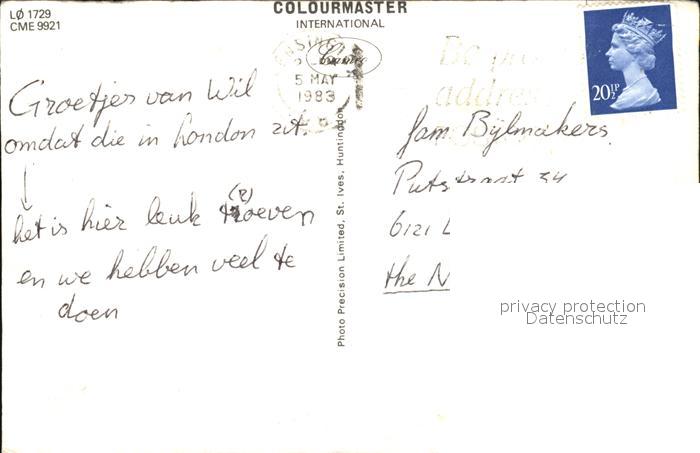 LØ 1729
CME 9921
COLOURMASTER
INTERNATIONAL
5 MAY
1983
20½P
Groetjes van Wil
omdat die in london zit.
het is hier leuk (P)
toeven
en we hebben veel te
doen
Photo Precision Limited, St. Ives, Huntingdon
fam. Bijlmakers
Putstraat 34
6121 L
the N
privacy protection
Datenschutz